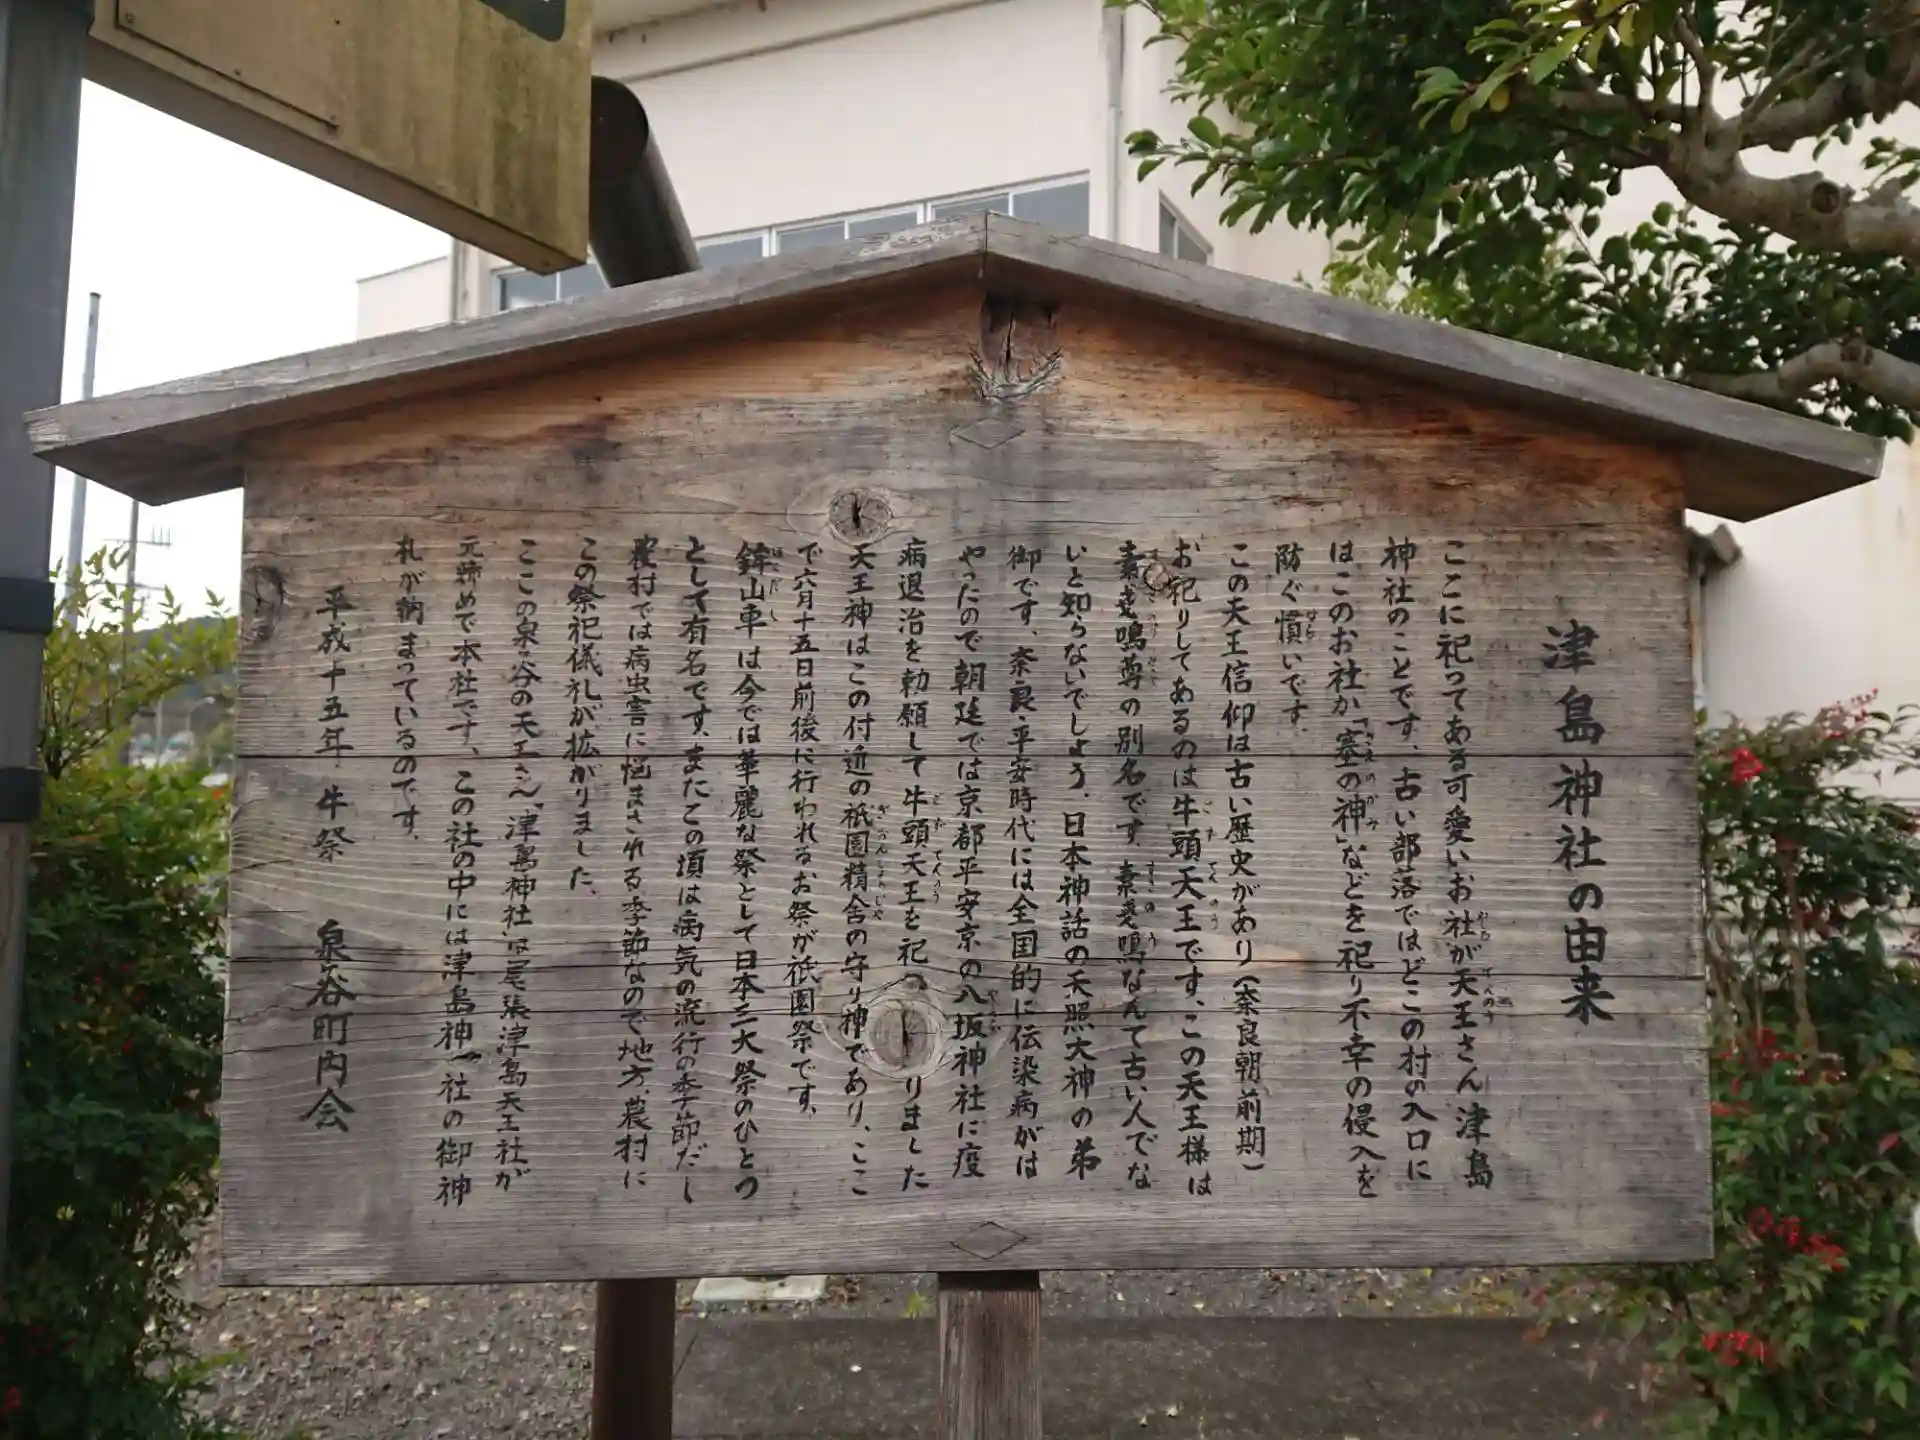 津島神社の由来
ここに祀ってある可愛いお社が天王さん津島
神社のことです。古い部落ではどこの村の入口に
はこのお社か「塞の神」などを祀り不幸の侵入を
防ぐ慣いです。
この天王信仰は古い歴史があり(奈良朝前期)
お祀りしてあるのは牛頭天王です、この天王様は
素戔鳴尊の別名です。素戔鳴なんて古い人でな
いと知らないでしょう。日本神話の天照大神の弟
御です、奈良・平安時代には全国的に伝染病がは
やったので朝廷では京都平安京の八坂神社に疫
病退治を勅願して牛頭天王を祀りました
天王神はこの付近の祇園精舎の守り神であり、ここ
で六月十五日前後に行われるお祭が祇園祭です、
鉾山車は今では華麗な祭として日本三大祭のひとつ
として有名です。またこの頃は病気の流行の季節だし
農村では病虫害に悩まされる季節なので地方、農村に
この祭祀儀礼が拡がりました、
ここの泉谷の天王さん、津島神社は尾張津島天王社が
元締めで本社です、この社の中には津島神社の御神
札が納まっているのです。
平成十五年 牛祭 泉谷町内会